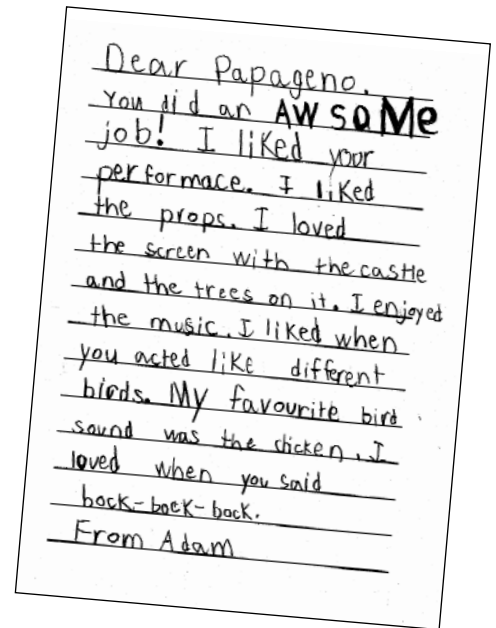 Dear Papageno.
You did an AWSOMe
job! I liked your
performace. I liked
the props. I loved
the screen with the castle
and the trees on it. I enjoyed
the music. I liked when
you acted like different
birds. My favourite bird
sound was the chicken. I
loved when you said
bock-bock-bock.
From Adam